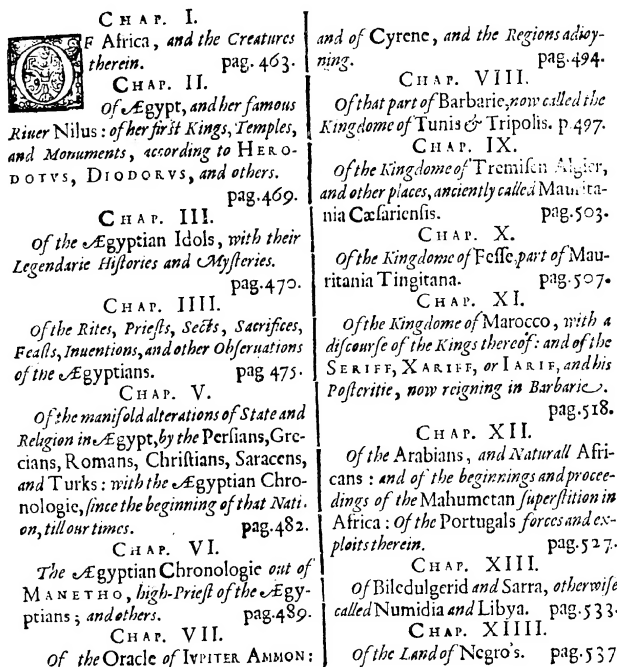 CHAP. I.
OF Africa, and the Creatures
therein. pag. 463.
CHAP. II.
Of Ægypt, and her famous
Riuer Nilus: of her first Kings, Temples,
and Monuments, according to HERO-
DOTVS, DIODORVS, and others.
pag.469.
CHAP. III.
Of the Ægyptian Idols, with their
Legendarie Histories and Mysteries.
pag.470.
CHAP. IIII.
Of the Rites, Priests, Sects, Sacrifices,
Feasts, Inuentions, and other Obseruations
of the Ægyptians. pag 475.
CHAP. V.
Of the manifold alterations of State and
Religion in Ægypt, by the Persians, Gre-
cians, Romans, Christians, Saracens,
and Turks: with the Ægyptian Chro-
nologie, since the beginning of that Nati-
on, till our times. pag.482.
CHAP. VI.
The Ægyptian Chronologie out of
MANETHO, high-Priest of the Ægy-
ptians; and others. pag.489.
CHAP. VII.
Of the Oracle of IVPITER AMMON:
and of Cyrene, and the Regions adioy-
ning. pag.494.
CHAP. VIII.
Of that part of Barbarie, now called the
Kingdome of Tunis & Tripolis. p.497.
CHAP. IX.
Of the Kingdome of Tremisen Algier,
and other places, anciently called Maurita-
nia Cæsariensis. pag.503.
CHAP. X.
Of the Kingdome of Fesse, part of Mau-
ritania Tingitana. pag.507.
CHAP. XI.
Of the Kingdome of Marocco, with a
discourse of the Kings thereof: and of the
SERIFF, XARIFF, or IARIF, and his
Posteritie, now reigning in Barbarie.
pag.518.
CHAP. XII.
Of the Arabians, and Naturall Afri-
cans: and of the beginnings and procee-
dings of the Mahumetan superstition in
Africa: Of the Portugals forces and ex-
ploits therein. pag.527.
CHAP. XIII.
Of Biledulgerid and Sarra, otherwise
called Numidia and Libya. pag.533.
CHAP. XIIII.
Of the Land of Negro's. pag.537